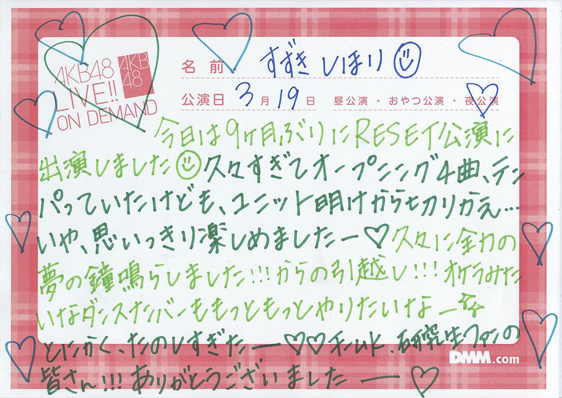 AKB48
LIVE!!
ON DEMAND
AKB
48
名前 すずき しほり
公演日 3月19日 昼公演・おやつ公演・夜公演
今日は9ヶ月ぶりにRESET公演に
出演しました 久々すぎてオープニング4曲、テン
パっていたけども、ユニット明けから切りかえ…
いや、思いっきり楽しめましたー♡久々に全力の
夢の鐘鳴らしました!!!からの引越し!!!オケラみた
いなダンスナンバーももっともっとやりたいなー☆
とにかく、たのしすぎたー♡♡チームK、研究生ファンの
皆さん!!!ありがとうございましたー♡
DMM.com